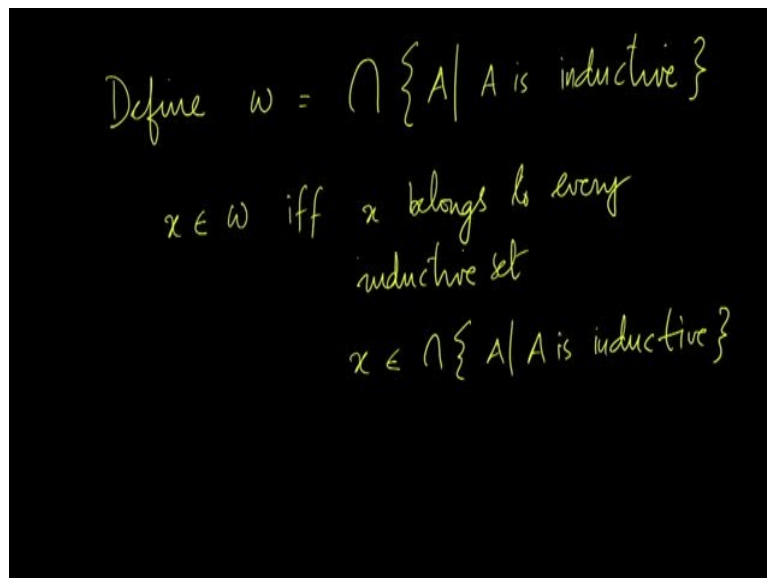 Define ω = ∩ { A | A is inductive }
x ∈ ω iff x belongs to every
inductive set
x ∈ ∩ { A | A is inductive }